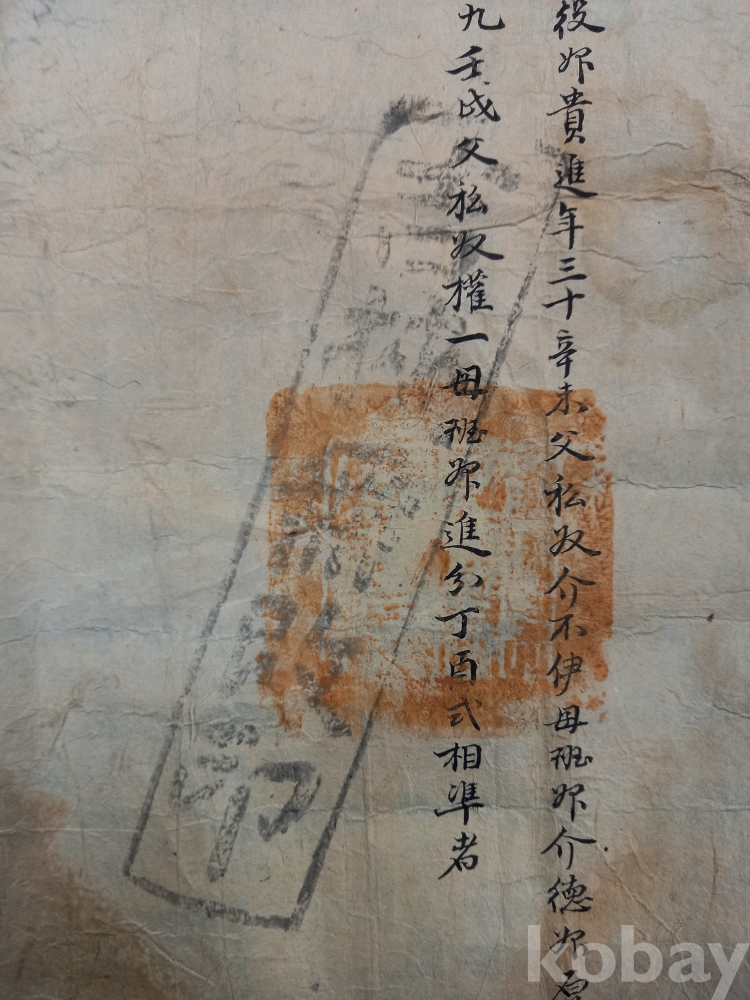 役婢貴進年三十辛未父私奴介不伊母班婢介德婢原
九壬戌父私奴權一母班婢進分丁酉式相準者
kobay